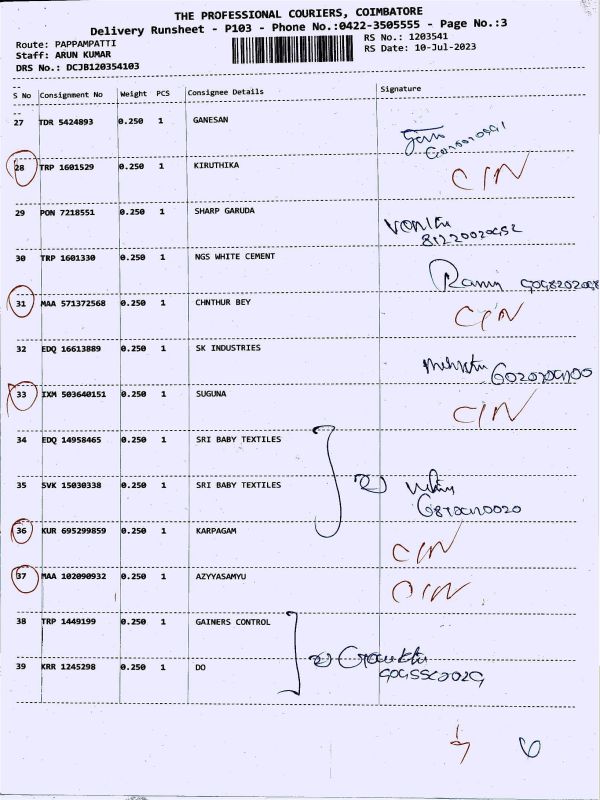 THE PROFESSIONAL COURIERS, COIMBATORE
Delivery Runsheet - P103 - Phone No.:0422-3505555 - Page No.:3
Route: PAPPAMPATTI
Staff: ARUN KUMAR
DRS No.: DCJB120354103
RS No.: 1203541
RS Date: 10-Jul-2023
S No Consignment No Weight PCS Consignee Details Signature
27 TDR 5424893 0.250 1 GANESAN
28 TRP 1601529 0.250 1 KIRUTHIKA C/N
29 PON 7218551 0.250 1 SHARP GARUDA
30 TRP 1601330 0.250 1 NGS WHITE CEMENT
31 MAA 571372568 0.250 1 CHNTHUR BEY C/N
32 EDQ 16613889 0.250 1 SK INDUSTRIES
33 IXM 503640151 0.250 1 SUGUNA C/N
34 EDQ 14958465 0.250 1 SRI BABY TEXTILES
35 SVK 15030338 0.250 1 SRI BABY TEXTILES
36 KUR 695299859 0.250 1 KARPAGAM C/N
37 MAA 102090932 0.250 1 AZYYASAMYU C/N
38 TRP 1449199 0.250 1 GAINERS CONTROL
39 KRR 1245298 0.250 1 DO